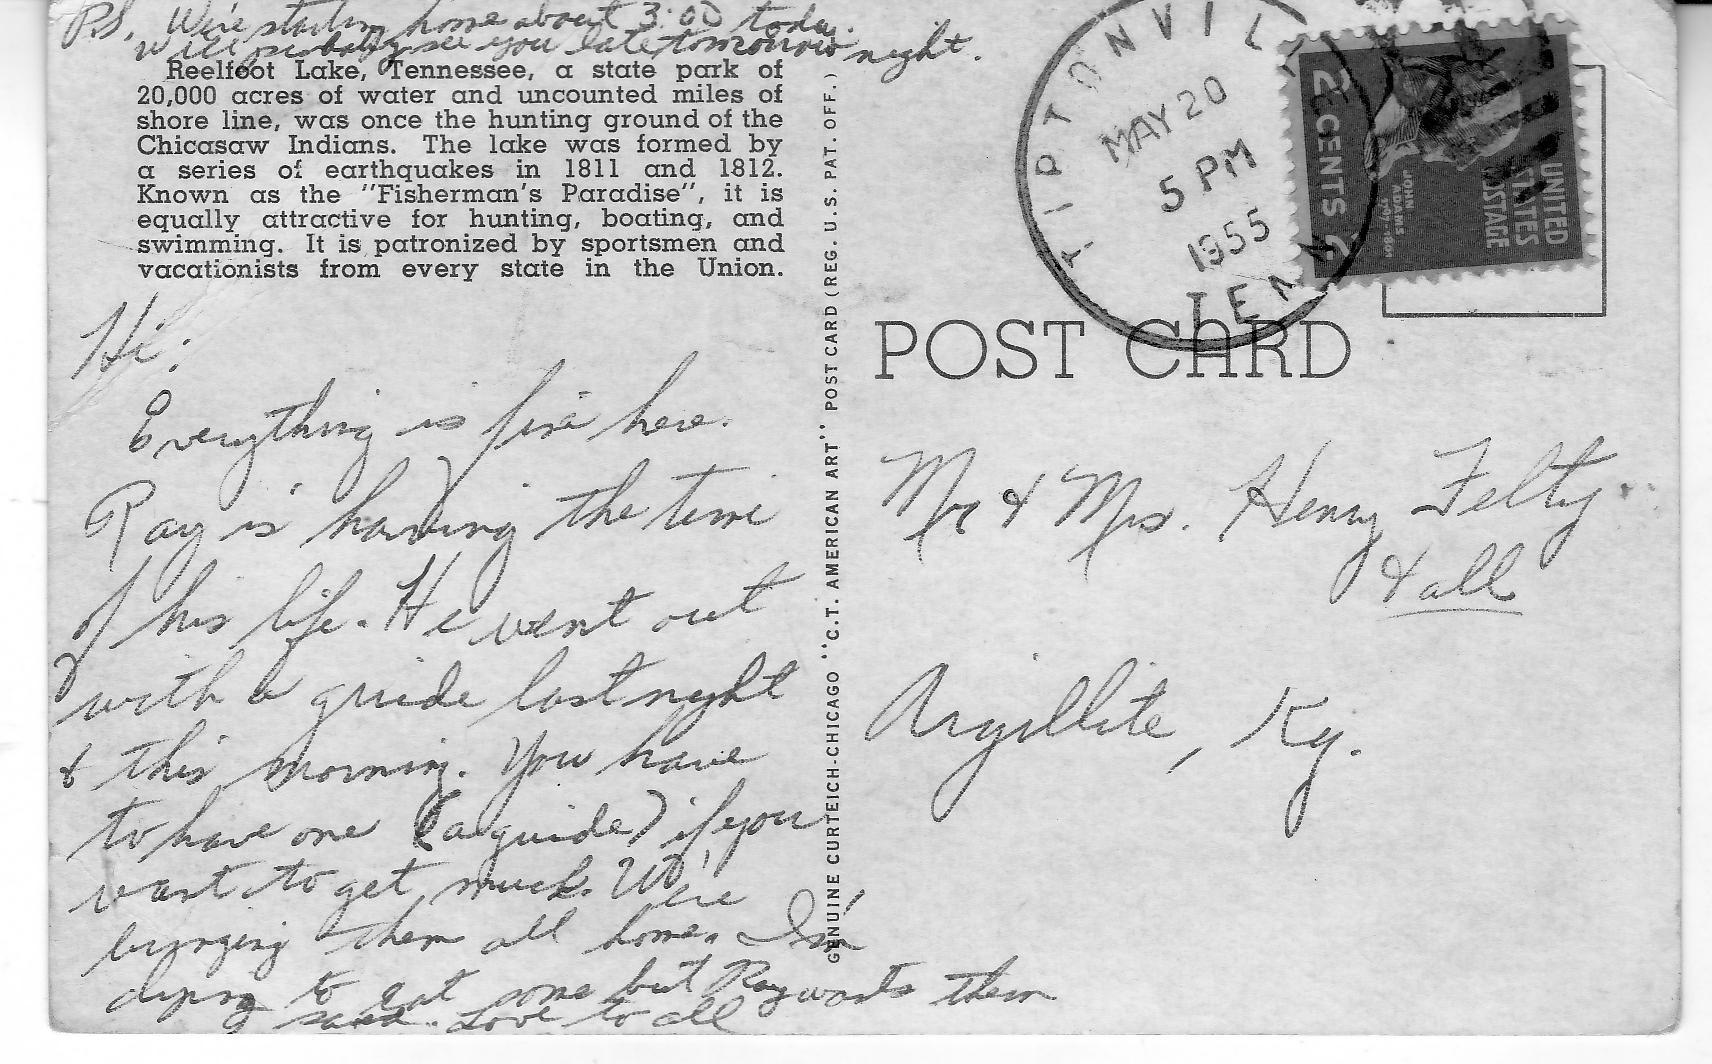 P.S. We're starting home about 3:00 today.
Will probably see you late tomorrow night.
Reelfoot Lake, Tennessee, a state park of
20,000 acres of water and uncounted miles of
shore line, was once the hunting ground of the
Chicasaw Indians. The lake was formed by
a series of earthquakes in 1811 and 1812.
Known as the "Fisherman's Paradise", it is
equally attractive for hunting, boating, and
swimming. It is patronized by sportsmen and
vacationists from every state in the Union.
Hi:
Everything is fine here.
Ray is having the time
of his life. He went out
with a guide last night
& this morning. You have
to have one (a guide) if you
want to get much. We're
bringing them all home. I'm
dying to eat some but Ray wants them
saved. Love to all
GENUINE CURTEICH-CHICAGO "C.T. AMERICAN ART" POST CARD (REG. U. S. PAT. OFF.)
TIPTONVILLE
MAY 20
5 PM
1955
TENN
UNITED
STATES
POSTAGE
JOHN
ADAMS
2 CENTS 2
POST CARD
Mr & Mrs. Henry Felty
& all
Argillite, Ky.